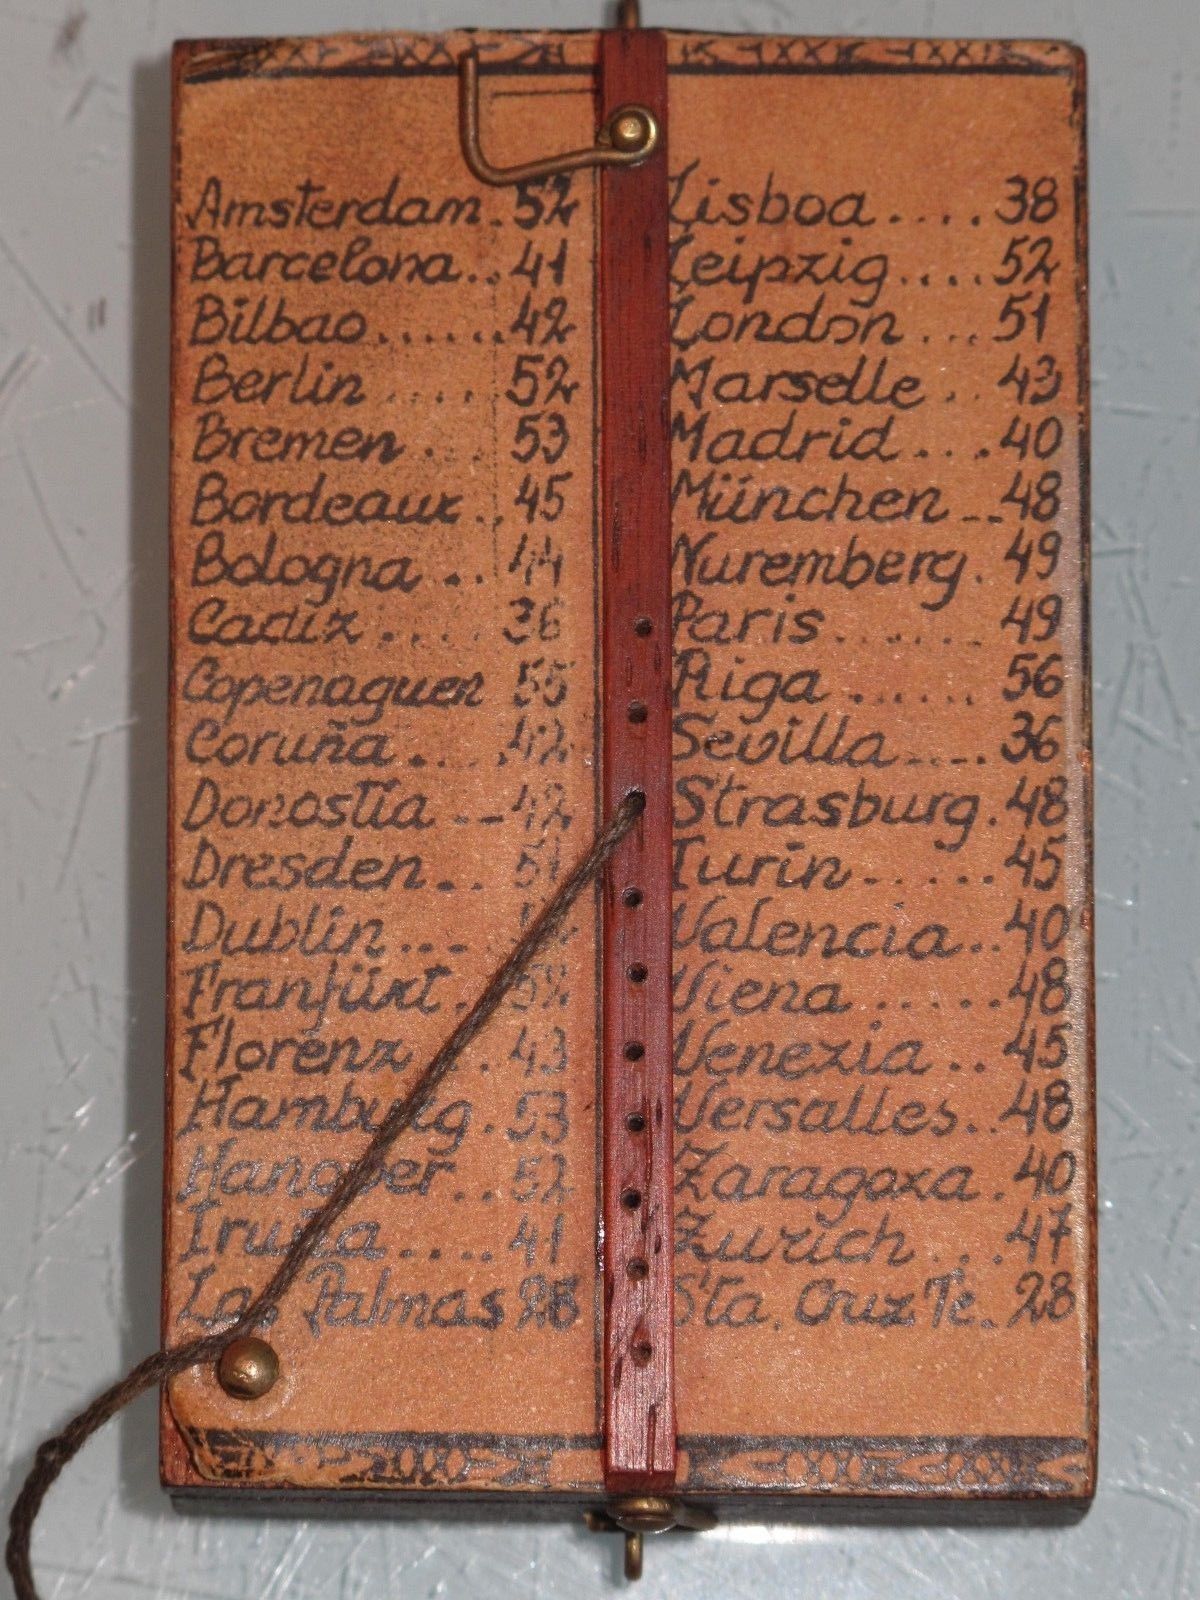 Amsterdam. 52
Barcelona.. 41
Bilbao...... 42
Berlin ..... 52
Bremen ... 53
Bordeaux .. 45
Bologna ... 44
Cadiz .... 36
Copenaguen 55
Coruña.... 42
Donostia -- 42
Dresden... 51
Dublin...
Franfürt. 52
Florenz .. 43
Hamburg. 53
Hanover.. 52
Iruña.... 41
Las Palmas 28
Lisboa.... 38
Leipzig.... 52
London ... 51
Marselle .. 43
Madrid ... 40
München -- 48
Nuremberg. 49
Paris...... 49
Riga ...... 56
Sevilla.... 36
Strasburg. 48
Turin..... 45
Valencia.. 40
Viena ..... 48
Venezia .. 45
Versalles.. 48
Zaragoza . 40
Zurich ... 47
Sta. Cruz Te. 28